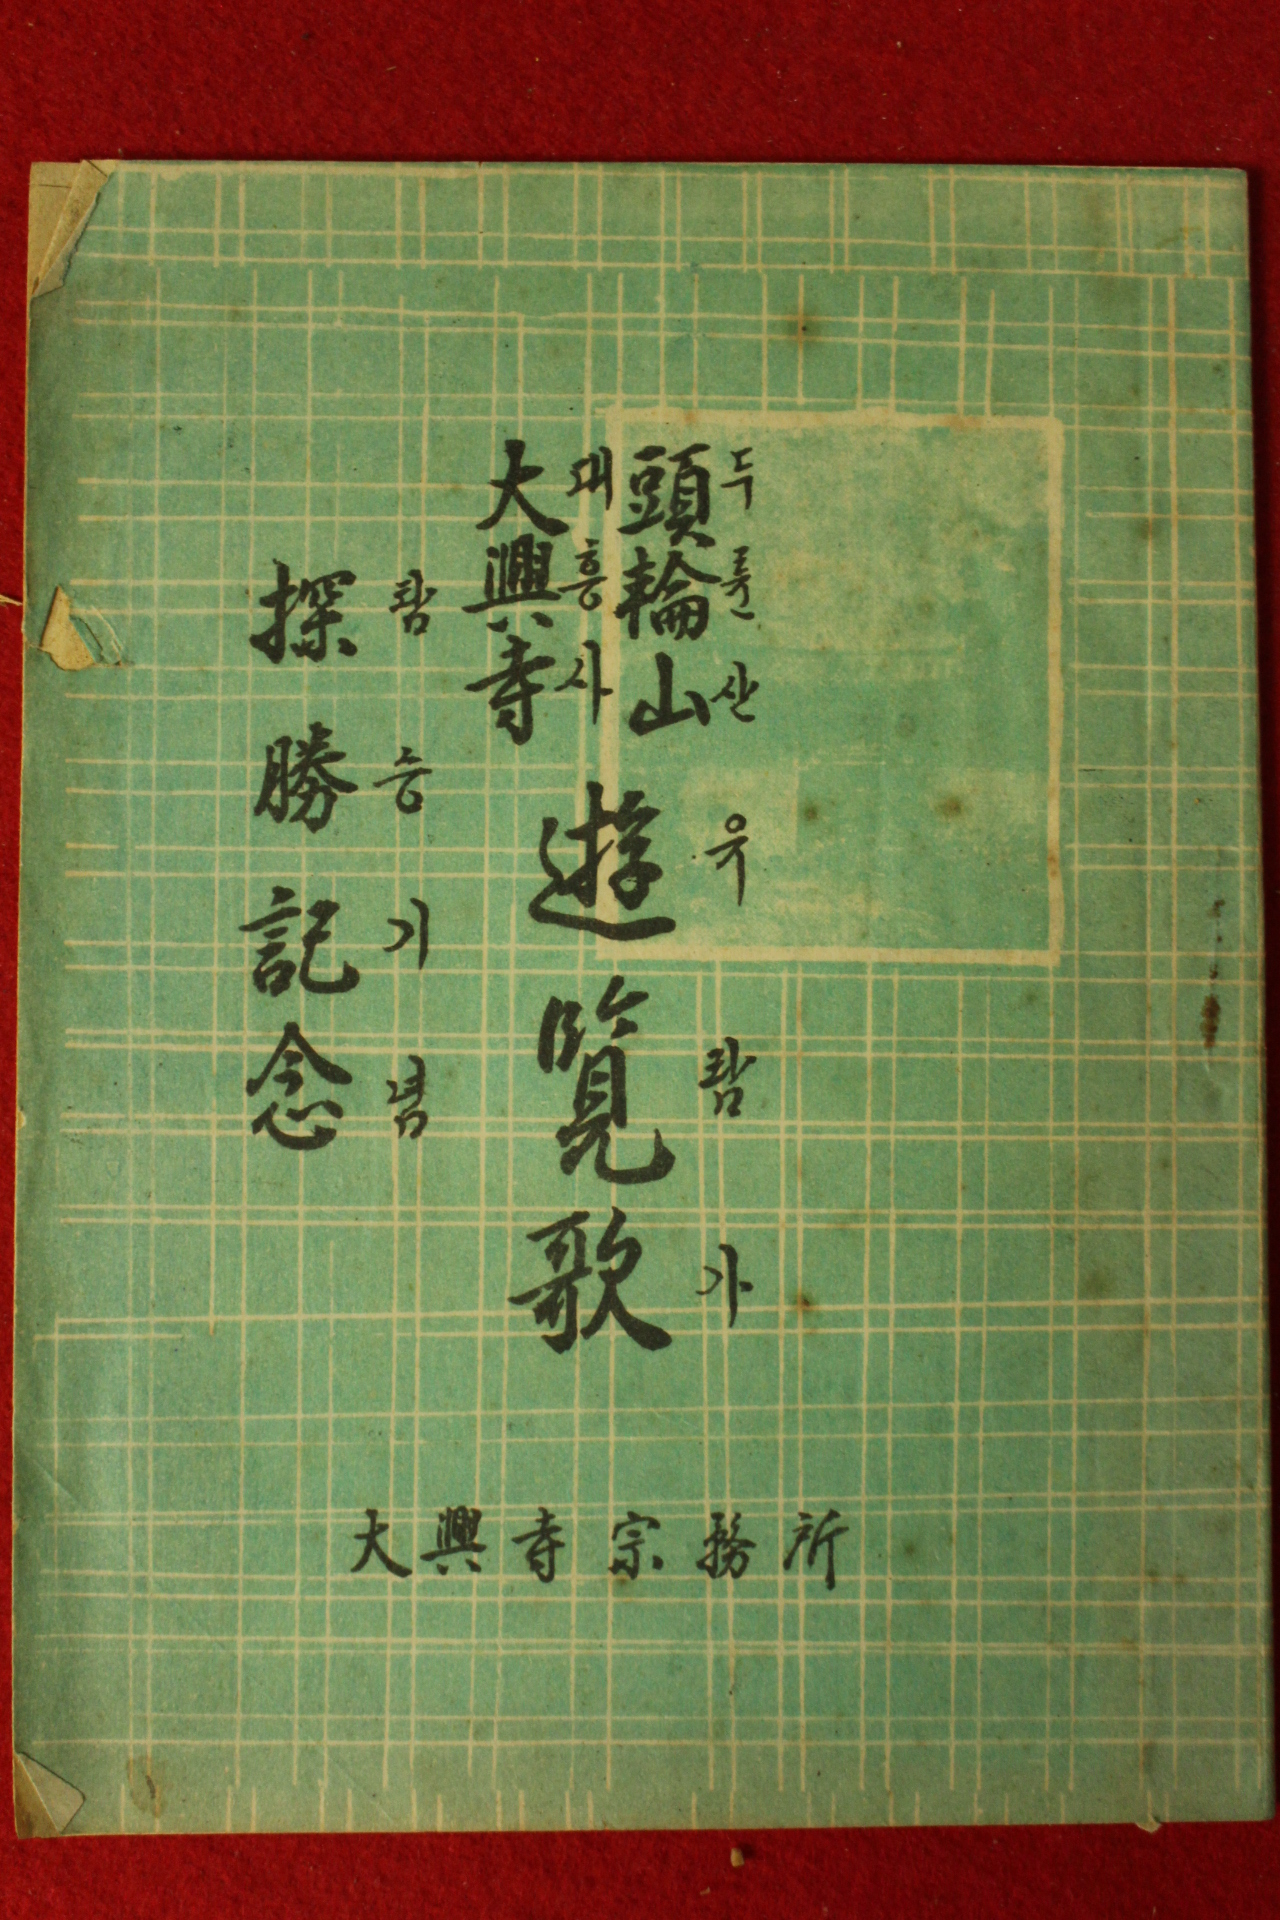 頭輪山
두륜산
大興寺
대흥사
遊覧歌
유람가
探勝記念
탐승기념
大興寺宗務所